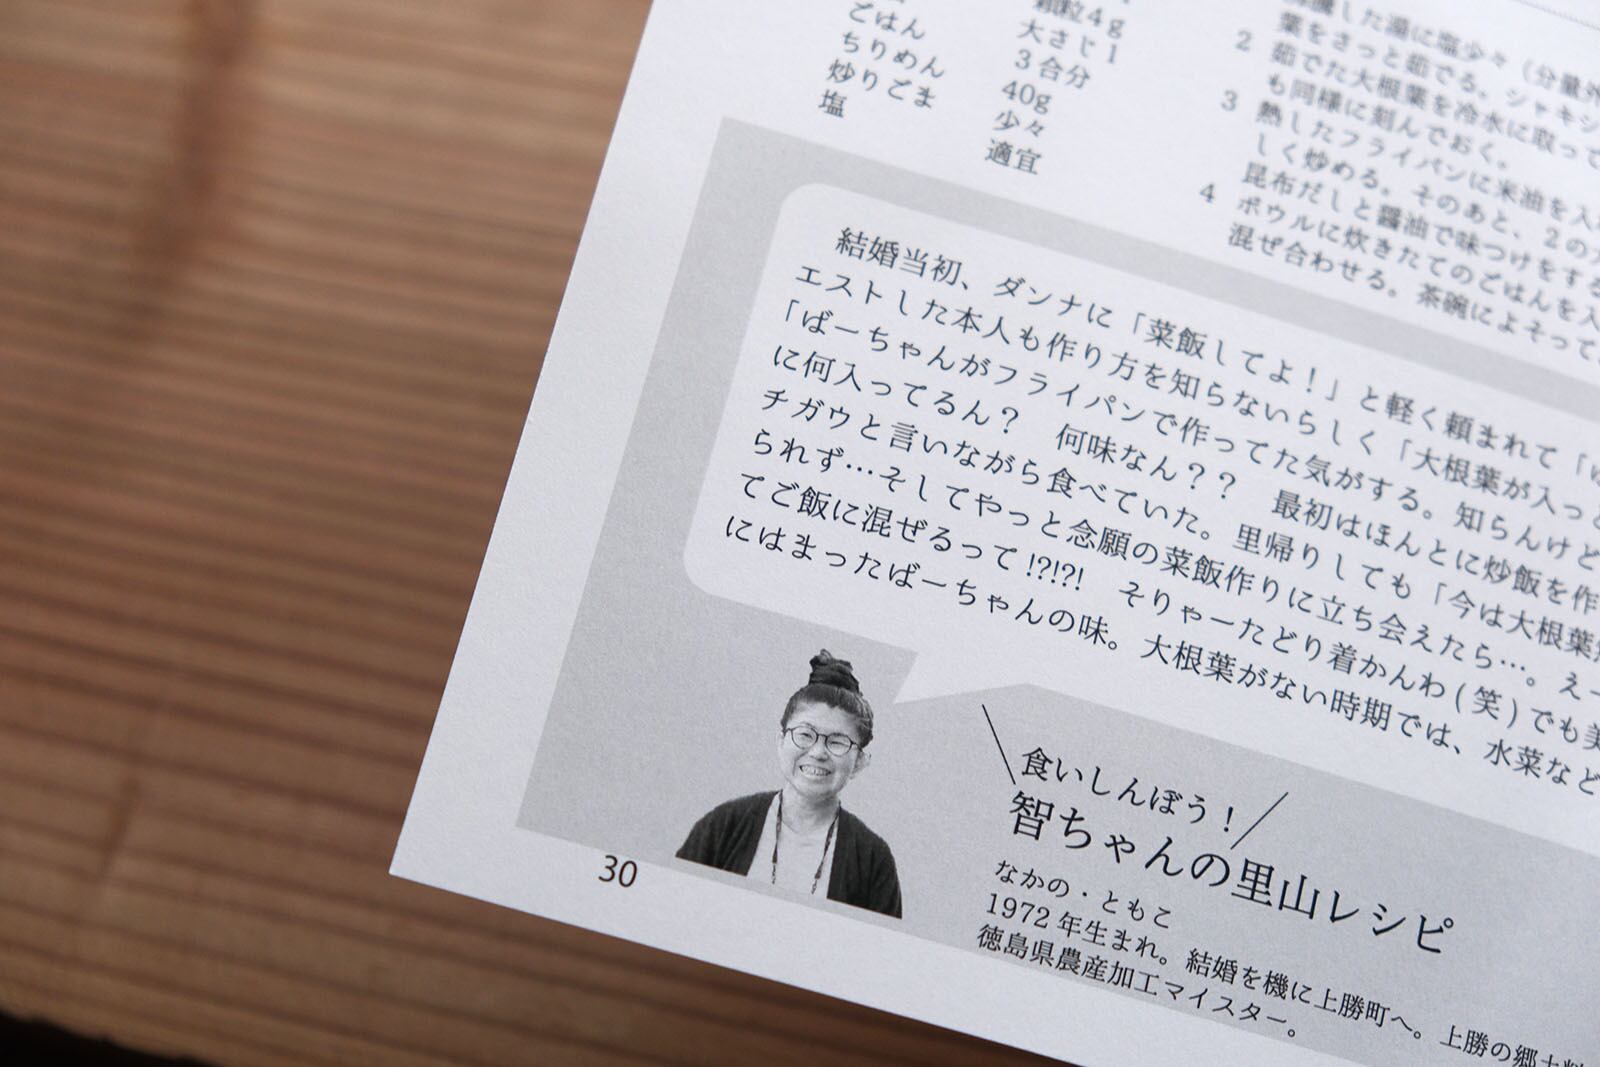 ごはん
ちりめん
炒りごま
塩
顆粒4g
大さじ1
3合分
40g
少々
適宜
した湯に塩少々（分量外
葉をさっと茹でる。シャキシ
2 茹でた大根葉を冷水に取って
も同様に刻んでおく。
3 熱したフライパンに米油を入
しく炒める。そのあと、2の
昆布だしと醤油で味つけをする
4 ボウルに炊きたてのごはんを入
混ぜ合わせる。茶碗によそって
結婚当初、ダンナに「菜飯してよ！」と軽く頼まれて「
エストした本人も作り方を知らないらしく「大根葉が入っと
「ばーちゃんがフライパンで作ってた気がする。知らんけど
に何入ってるん？　何味なん？？　最初はほんとに炒飯を作
チガウと言いながら食べていた。里帰りしても「今は大根葉
られず…そしてやっと念願の菜飯作りに立ち会えたら…。えー
てご飯に混ぜるって!?!?!　そりゃーたどり着かんわ(笑)でも美
にはまったばーちゃんの味。大根葉がない時期では、水菜など
食いしんぼう！
智ちゃんの里山レシピ
なかの・ともこ
1972年生まれ。結婚を機に上勝町へ。上勝の郷土料
徳島県農産加工マイスター。
30